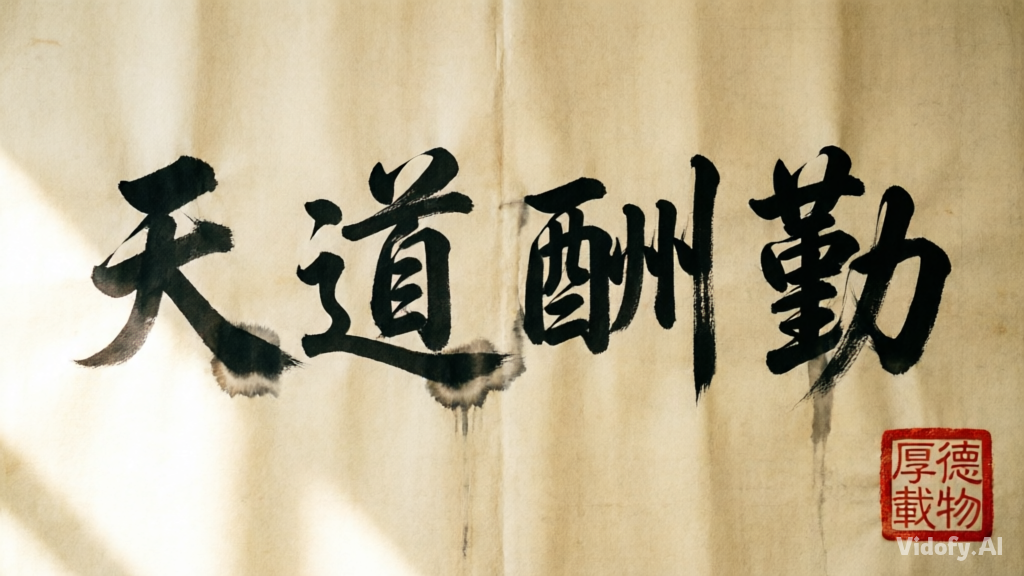 天道酬勤
厚德
載物
Vidofy.AI